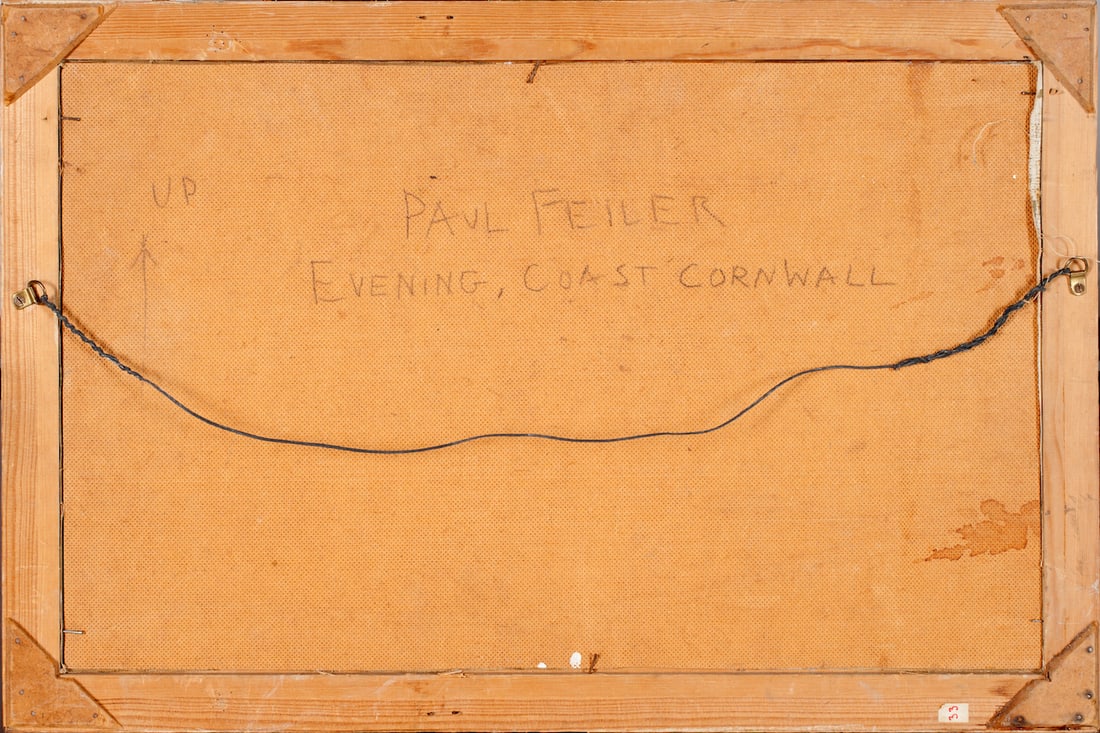 UP
PAUL FEILER
EVENING, COAST CORNWALL
33